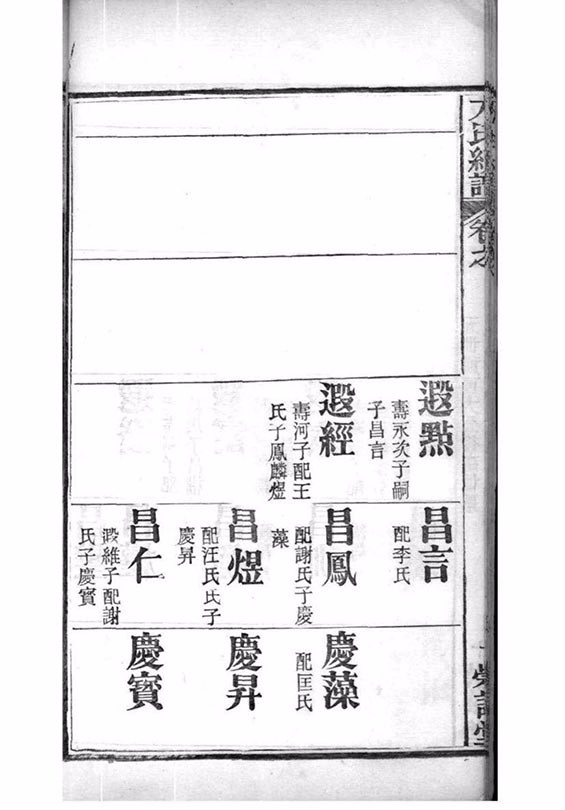 氏續譜
卷之
遐㸃
壽永次子嗣
子昌言
遐經
壽河子配王
氏子鳳麟煜
昌言
配李氏
昌鳳
配謝氏子慶
藻
昌煜
配汪氏氏子
慶昇
昌仁
遐維子配謝
氏子慶賓
慶藻
配匡氏
慶昇
慶賓